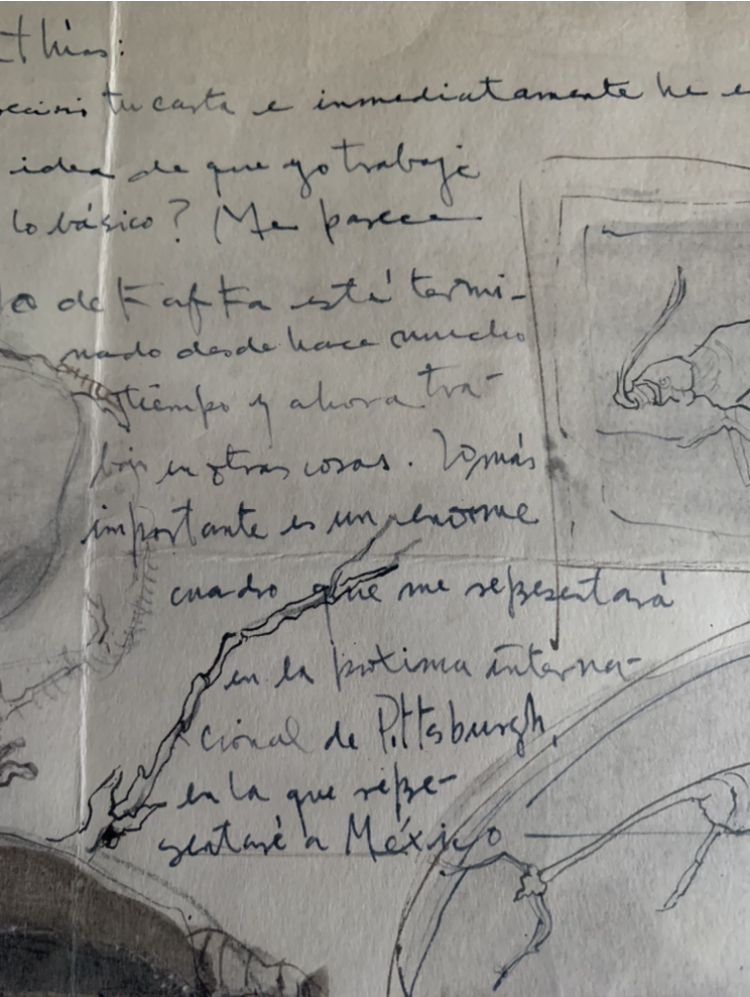 thias:
recibí tu carta e inmediatamente he e
idea de que yo trabaje
lo básico? Me parece
lo de Kafka está termi-
nado desde hace mucho
tiempo y ahora tra-
bajo en otras cosas. Lo más
importante es un enorme
cuadro que me representará
en la próxima interna-
cional de Pittsburgh,
en la que repre-
sentaré a México